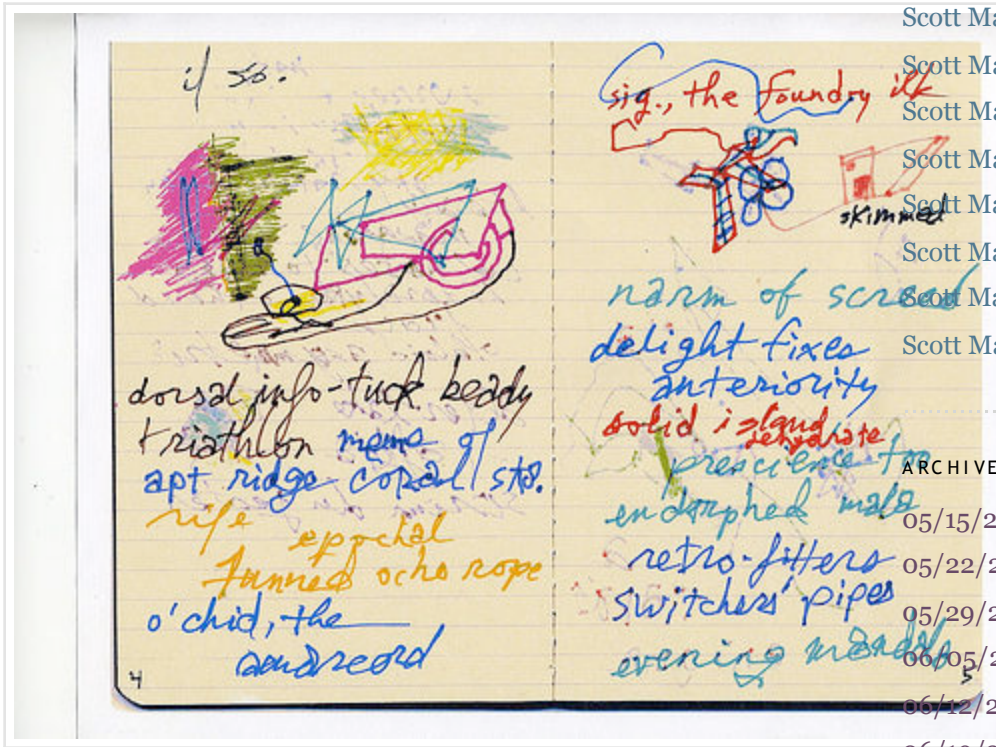 if so.
dorsal info-tuck beady
triathlon meme of
apt ridge copal / sto.
rife
epochal
tanned ocho rope
o'chid, the
4
sig., the foundry ilk
skimmed
narm of screed
delight fixes
anteriority
solid island
dehydrate
prescience too
endorphed male
retro-fitters
switchers' pipes
evening
5
Scott Ma
Scott Ma
Scott Ma
Scott Ma
Scott Ma
Scott Ma
Scott Ma
Scott Ma
ARCHIVE
05/15/2
05/22/2
05/29/2
06/05/2
06/12/2